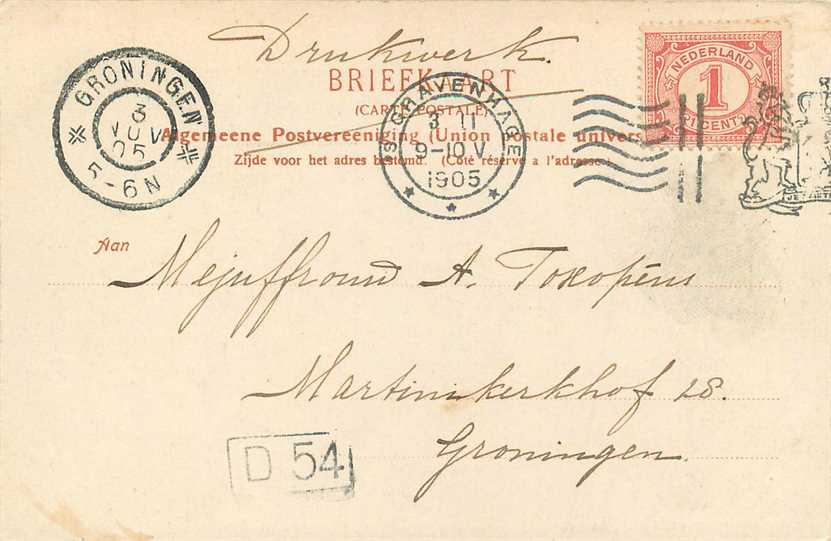 Drukwerk.
BRIEFKAART
(CARTE POSTALE)
Algemeene Postvereeniging (Union postale univers
Zijde voor het adres bestemd. (Côté réservé a l'adresse.)
GRONINGEN
3
5-6 N
'S GRAVENHAGE
9-10 V
1905
NEDERLAND
1
CENT
Aan
Mejuffrouw A. Toxopéus
Martinikerkhof 28.
Groningen.
D 54